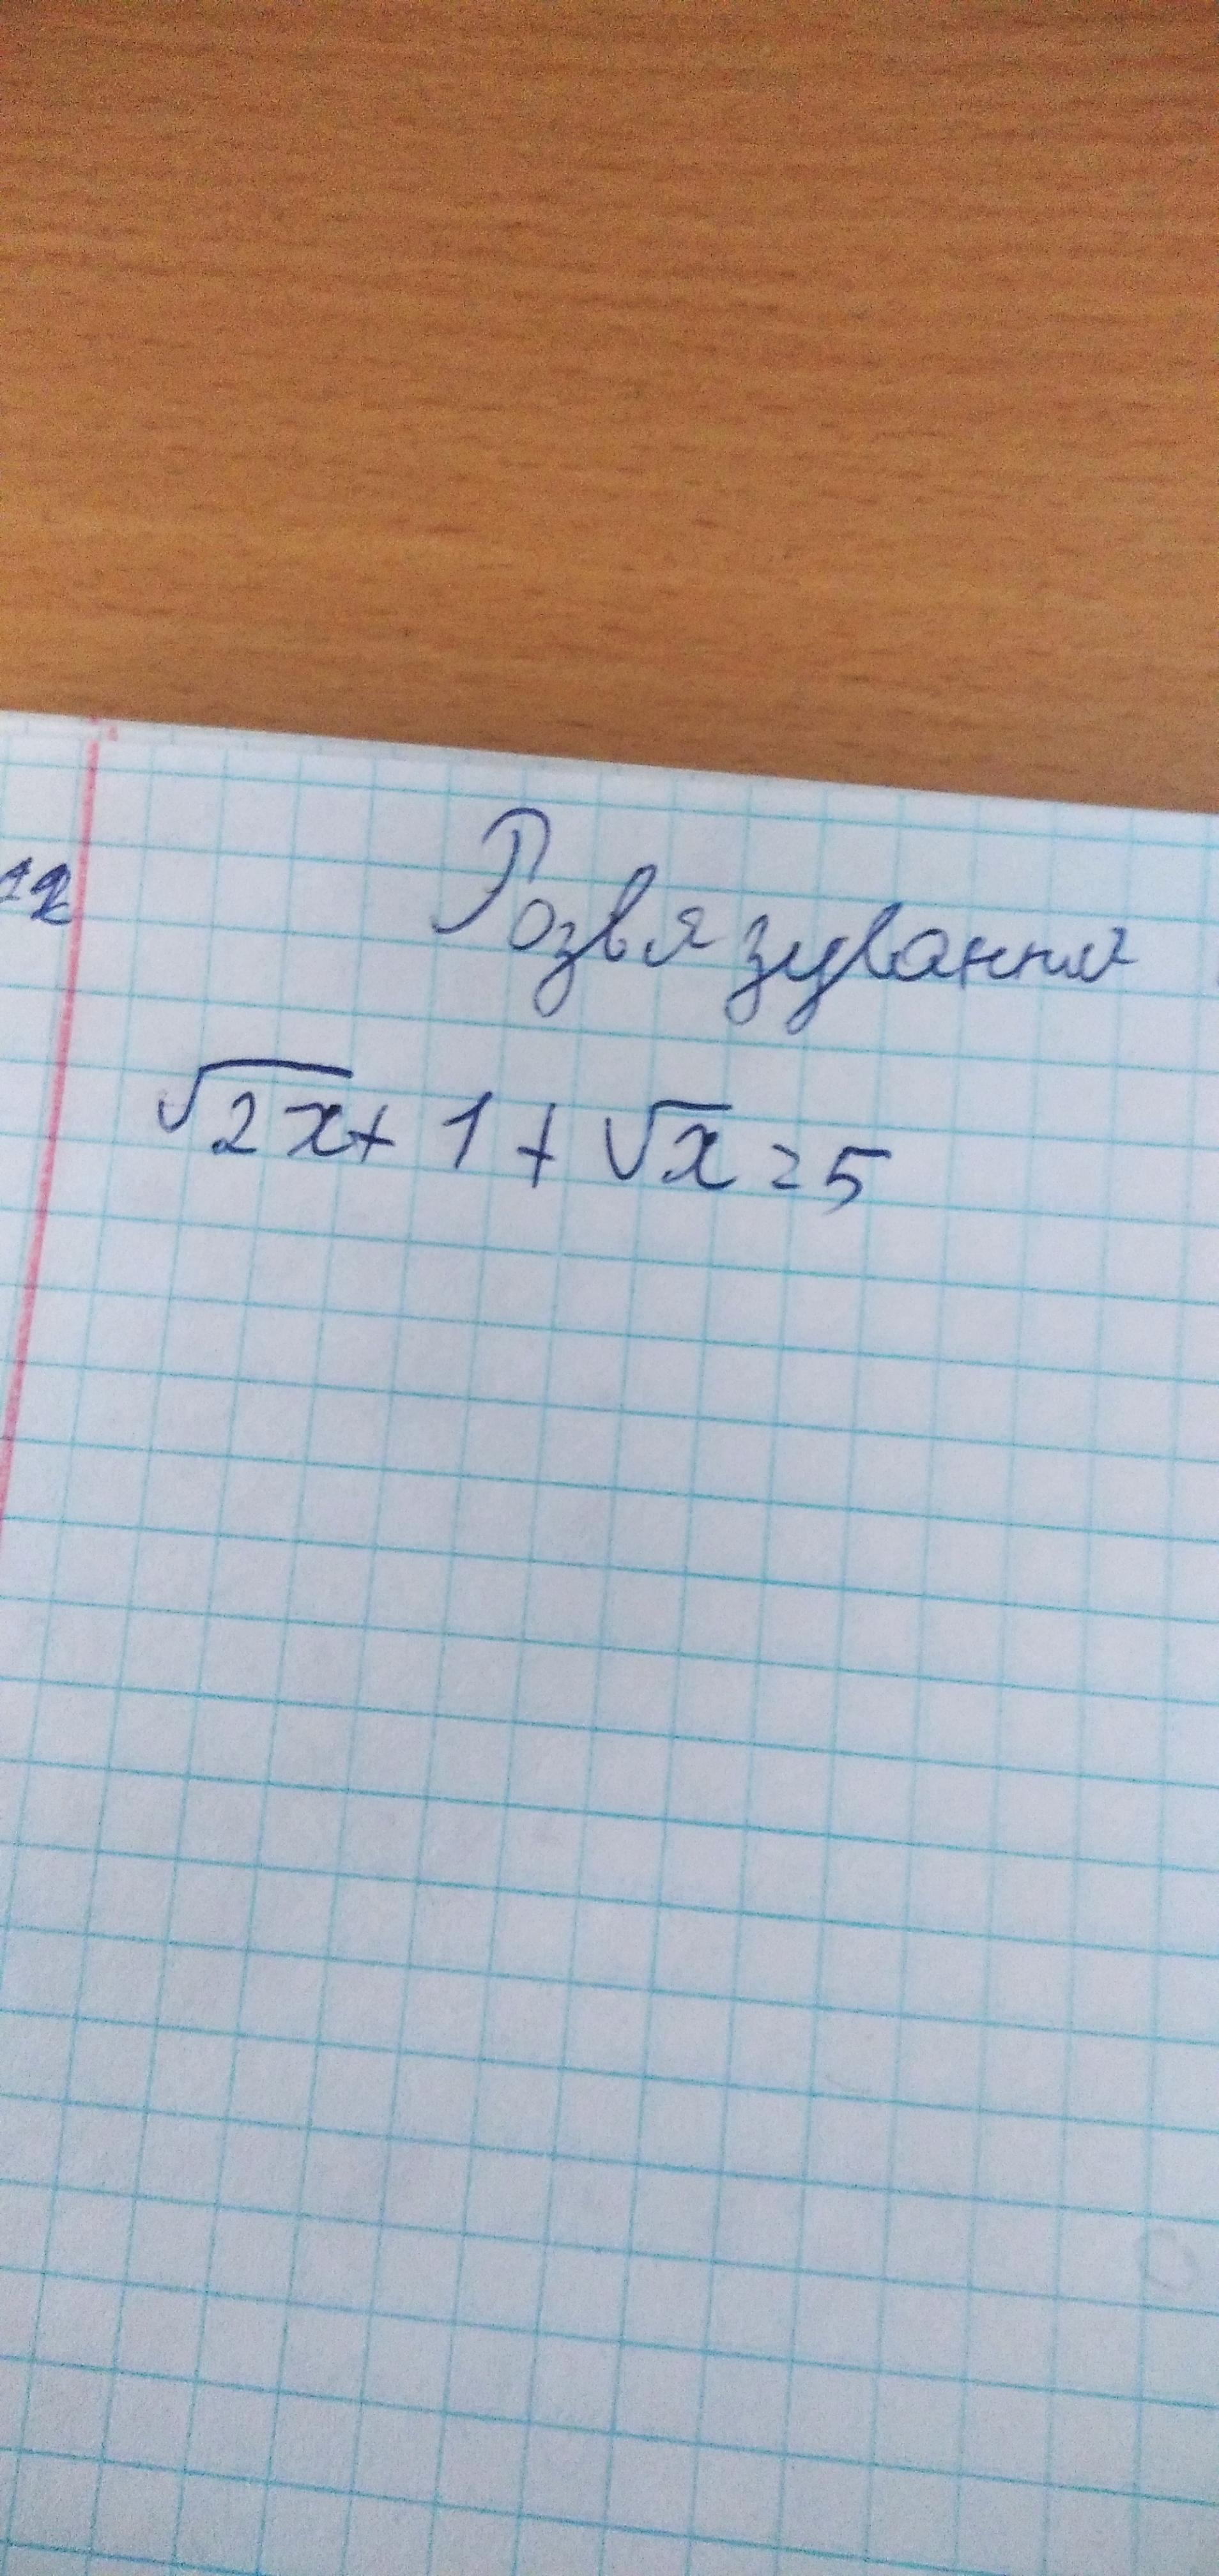 12
Розвязування
√2x + 1 + √x = 5